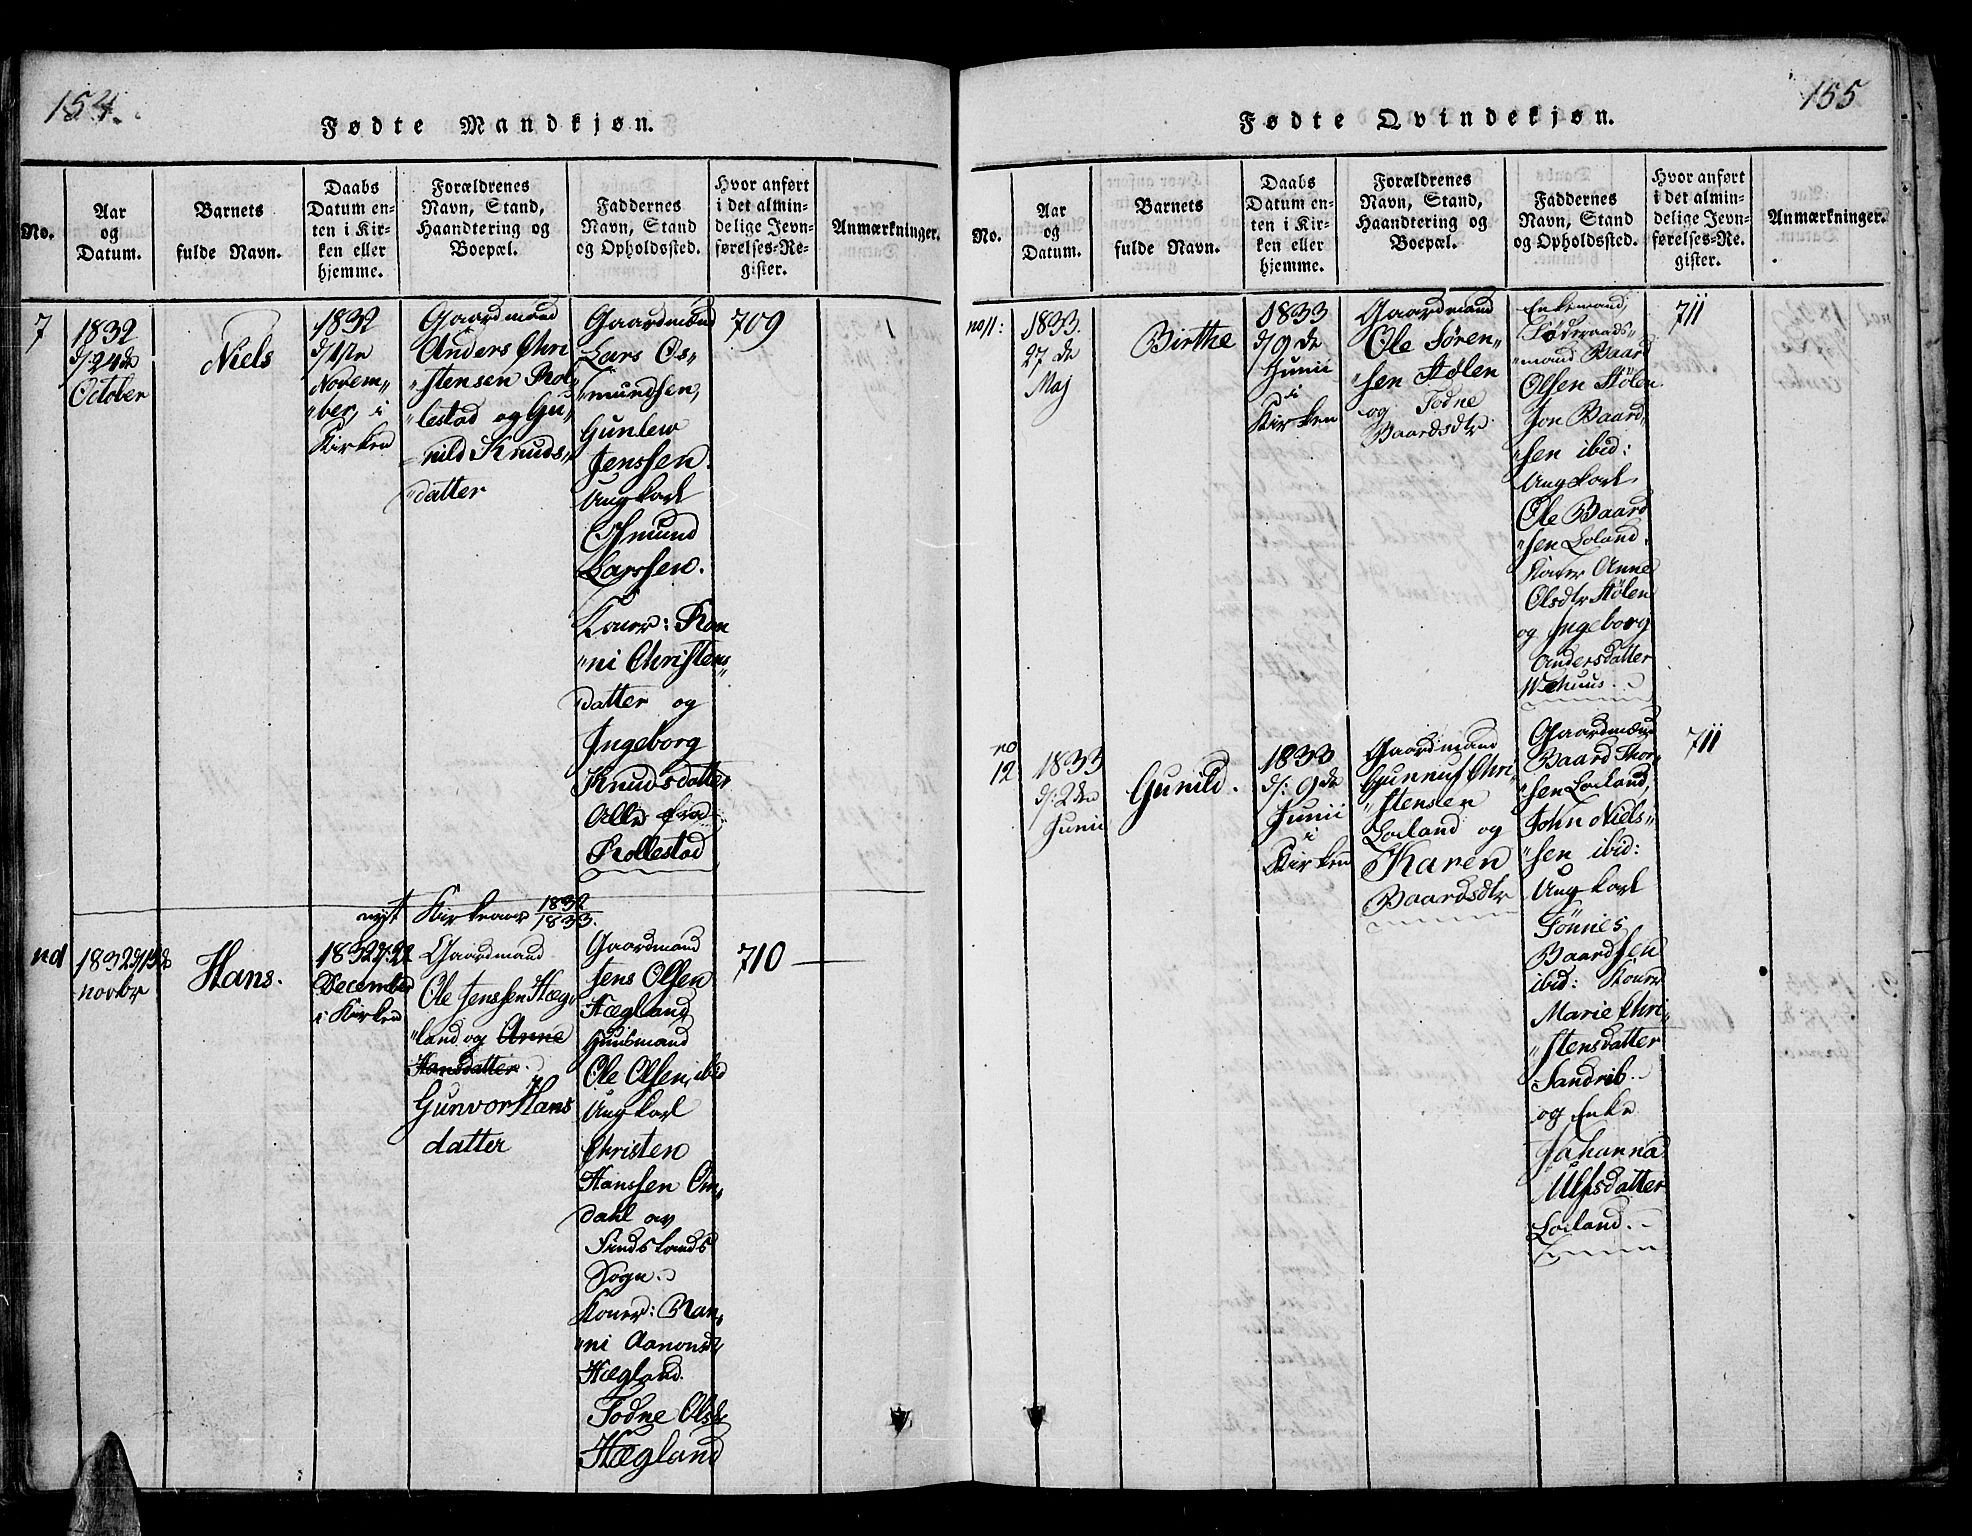 154.
Fødte Mandkjøn.
No.
Aar
og
Datum.
Barnets
fulde Navn.
Daabs
Datum en-
ten i Kir-
ken eller
hjemme.
Forældrenes
Navn, Stand,
Haandtering og
Boepæl.
Faddernes
Navn, Stand
og Opholdssted.
Hvor anført
i det almin-
delige Jevn-
førelses-Re-
gister.
Anmærkninger.
7
1832
d: 24de
October
Niels
1832
d: 1ste
Novem„
„ber, i
Kirken
Gaardmand
Anders Chri
„stensen Rol„
„lestad og Gu„
„nild Knuds„
„datter
Gaardmænd
Lars Os„
„mundsen,
Gunlew
Jenssen.
Ungkarl
Osmund
Larssen.
Koner: Ran
„ni Christens„
datter og
Ingeborg
Knudsdatter
Alle fra
Rollestad
709
nyt Kirkeaar 1832
1833.
nd
1832 d 13de
novbr
Hans.
1832 d: 22
December
i Kirken
Gaardmand
Ole Jenssen Hæg„
„land og Anne
Hansdatter.
Gunvor Hans
datter
Gaardmand
Jens Olsen
Hægland
Huusmand
Ole Olsen, ibid
Ungkarl
Christen
Hanssen Om„
dahl av
Findslands
Sogn.
Koner: Ran„
„ni Aanonsd
Hægland.
Todne Olsd
Hægland
710
155
Fødte Qvindekjøn.
No.
Aar
og
Datum.
Barnets
fulde Navn.
Daabs
Datum en-
ten i Kir-
ken eller
hjemme.
Forældrenes
Navn, Stand,
Haandtering og
Boepæl.
Faddernes
Navn, Stand
og Opholdssted.
Hvor anført
i det almin-
delige Jevn-
førelses-Re-
gister.
Anmærkninger.
no 11:
1833.
27 de
Maj
Birthe
1833
d/ 9 de
Junii
i
Kirken
Gaardmand
Ole Søren„
„sen Stølen
og Todne
Baardsdtr
Enkemand,
Føderaads„
„mand Baard
Olsen Stølen
Jon Baard„
„sen ibid:
Ungkarl
Ole Baard
„sen Loland.
Koner Anne
Olsdtr Stølen
og Ingeborg
Andersdatter
Wehuus.
711
no
12
1833
d: 2den
Junii
Gunild.
1833
d: 9de
Junii
i
Kirken
Gaardmand
Gunnuf Chri„
„stensen
Loeland og
Karen
Baardsdtr
Gaardmænd
Baard Thor„
„sen Loeland,
John Niels„
„sen ibid:
Ungkarl
Tønnes
Baardsen
ibid: Koner
Marie Chri„
„stensdatter
Sandrib.
og Enke
Johanna
Ulfsdatter
Loeland.
711